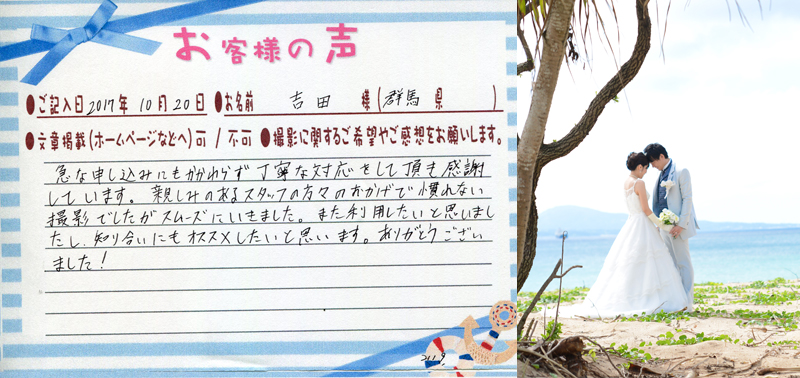 お客様の声
●ご記入日2017年 10月20日 ●お名前 吉田 様(群馬 県 )
●文章掲載(ホームページなどへ)可 / 不可 ●撮影に関するご希望やご感想をお願いします。
急な申し込みにもかかわらず丁寧な対応をして頂き感謝
しています。親しみのあるスタッフの方々のおかげで慣れない
撮影でしたがスムーズにいきました。また利用したいと思いまし
たし、知り合いにもオススメしたいと思います。ありがとうござい
ました！